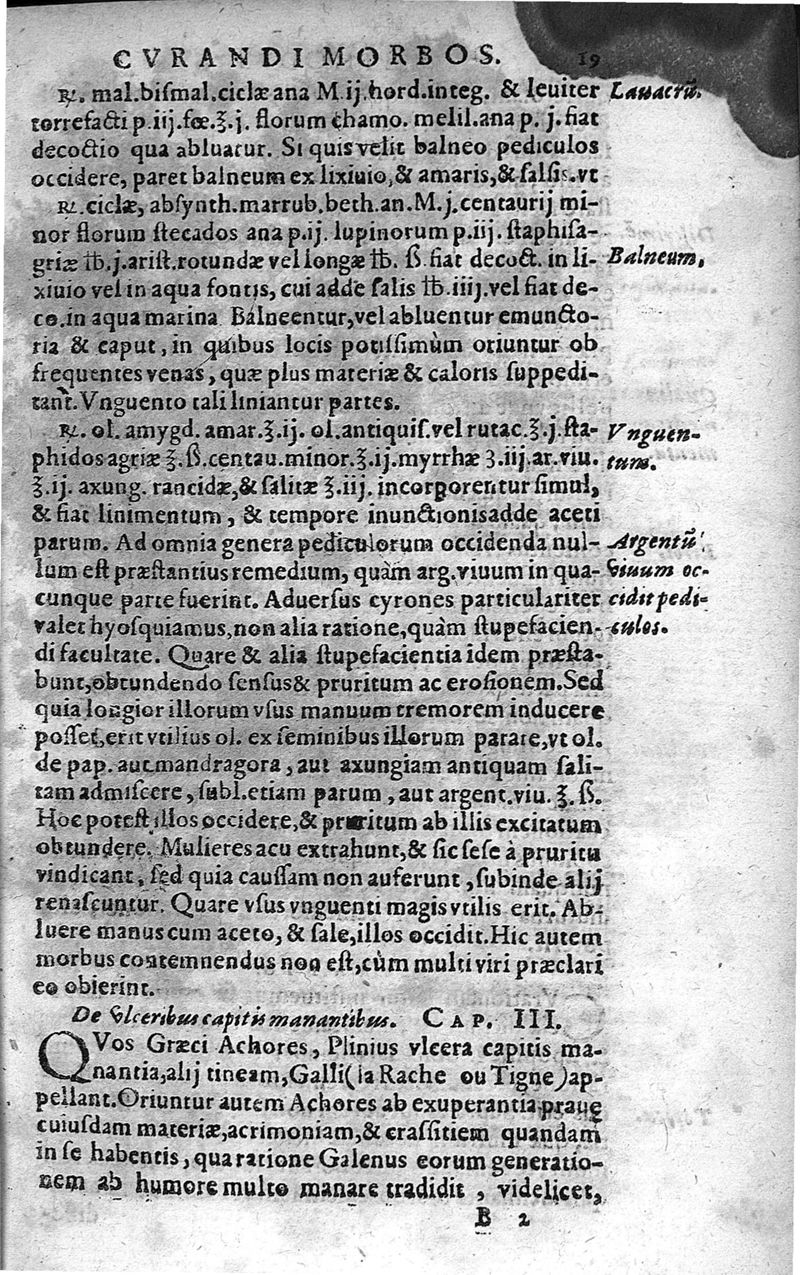 CVRANDI MORBOS. 19
℞. mal.bismal.ciclæ ana M ij.hord.integ. & leuiter Lauacrū.
torrefacti p.iij.fœ.℥.j. florum chamo. melil.ana p. j. fiat
decoctio qua abluatur. Si quis velit balneo pediculos
occidere, paret balneum ex lixiuio,& amaris,& salsis.vt
℞.ciclæ, absynth.marrub.beth.an.M.j.centaurij mi-
nor florum stecados ana p.ij. lupinorum p.iij. staphisa-
griæ ℔.j.arist.rotundæ vel longæ ℔. ß. fiat decoct. in li- Balneum,
xiuio vel in aqua fontis, cui adde salis ℔.iiij.vel fiat de-
co.in aqua marina Balneentur,vel abluentur emuncto-
ria & caput, in quibus locis potissimùm oriuntur ob
frequentes venas, quæ plus materiæ & caloris suppedi-
tant. Vnguento tali liniantur partes.
℞. ol. amygd. amar.℥.ij. ol.antiquis.vel rutac.℥.j.sta- Vnguen-
phidosagriæ ℥.ß.centau.minor.℥.ij.myrrhæ ʒ.iij.ar.viu. tum.
℥.ij. axung. rancidæ,& salitæ ℥.iij. incorporentur simul,
& fiat linimentum, & tempore inunctionisadde aceti
parum. Ad omnia genera pediculorum occidenda nul- Argentū
lum est præstantius remedium, quàm arg.viuum in qua- viuum oc-
cunque parte fuerint. Aduersus cyrones particulariter cidit pedi-
valet hyosquiamus,non alia ratione,quàm stupefacien- culos.
di facultate. Quare & alia stupefacientia idem præsta-
bunt,obtundendo sensus& pruritum ac erosionem.Sed
quia longior illorum vsus manuum tremorem inducere
posset,erit vtilius ol. ex seminibus illorum parare,vt ol.
de pap. aut mandragora, aut axungiam antiquam sali-
tam admiscere, subl.etiam parum, aut argent.viu. ℥. ß.
Hoc potest illos occidere,& pruritum ab illis excitatum
obtundere. Mulieres acu extrahunt,& sic sese à pruritu
vindicant, sed quia caussam non auferunt, subinde alij
renascuntur. Quare vsus vnguenti magis vtilis erit. Ab-
luere manus cum aceto, & sale,illos occidit.Hic autem
morbus contemnendus non est,cùm multi viri præclari
eo obierint.
De vlceribus capitis manantibus. CAP. III.
QVos Græci Achores, Plinius vlcera capitis ma-
nantia,alij tineam,Galli(la Rache ou Tigne)ap-
pellant.Oriuntur autem Achores ab exuperantia prauę
cuiusdam materiæ,acrimoniam,& crassitiem quandam
in se habentis, qua ratione Galenus eorum generatio-
nem ab humore multo manare tradidit, videlicet,
B 2